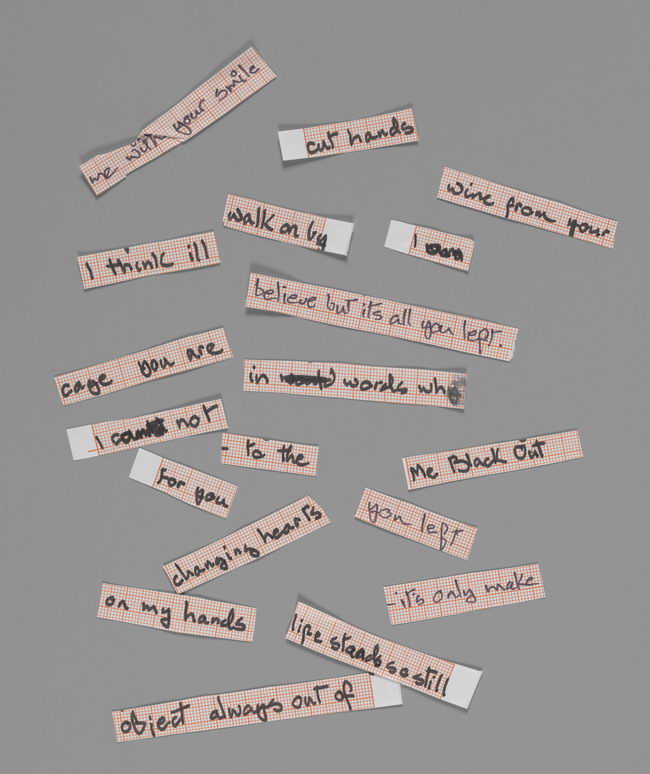 me with your smile
cut hands
wine from your
walk on by
I
I think ill
believe but it's all you left.
cage you are
in words wh
I not
- to the
me Black Out
for you
you left
changing hearts
- it's only make
on my hands
life stands so still
object always out of